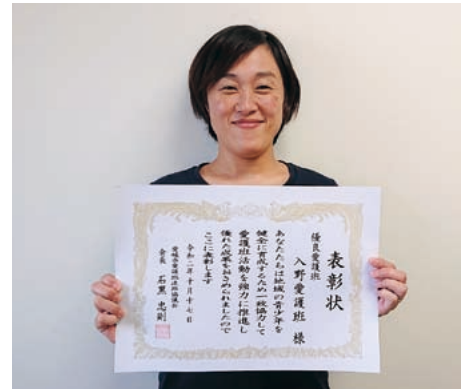 表彰状
優良愛護班
入野愛護班 様
あなたたちは地域の青少年を
健全に育成するため一致協力して
愛護班活動を強力に推進し
優れた成果をおさめられましたので
ここに表彰します
令和二年十月十七日
愛媛県愛護班連絡協議会
会長 石黒 忠則